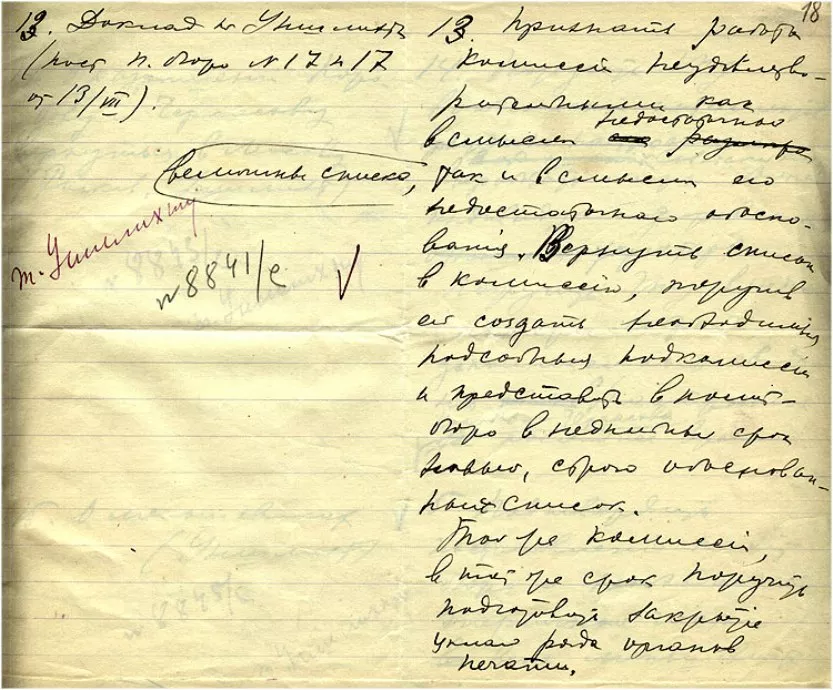 18
13. Доклад т. Уншлихта
(пост. П. бюро № 17 п 17
от 13/VII).
величины списка,
т. Уншлихту
№ 8841/с
13. Признать работу
комиссии неудовлетво-
рительными как
недостаточно
в смысле
так и в смысле его
недостаточного обосно-
вания. Вернуть список
в комиссию, поручив
ей создать необходимыя
подсобныя подкомиссии
и представить в полит-
бюро в недельный срок
новый, строго обоснован-
ный список.
Той же комиссии,
в тот же срок поручить
подготовить закрытие
целаго ряда органов
печати.